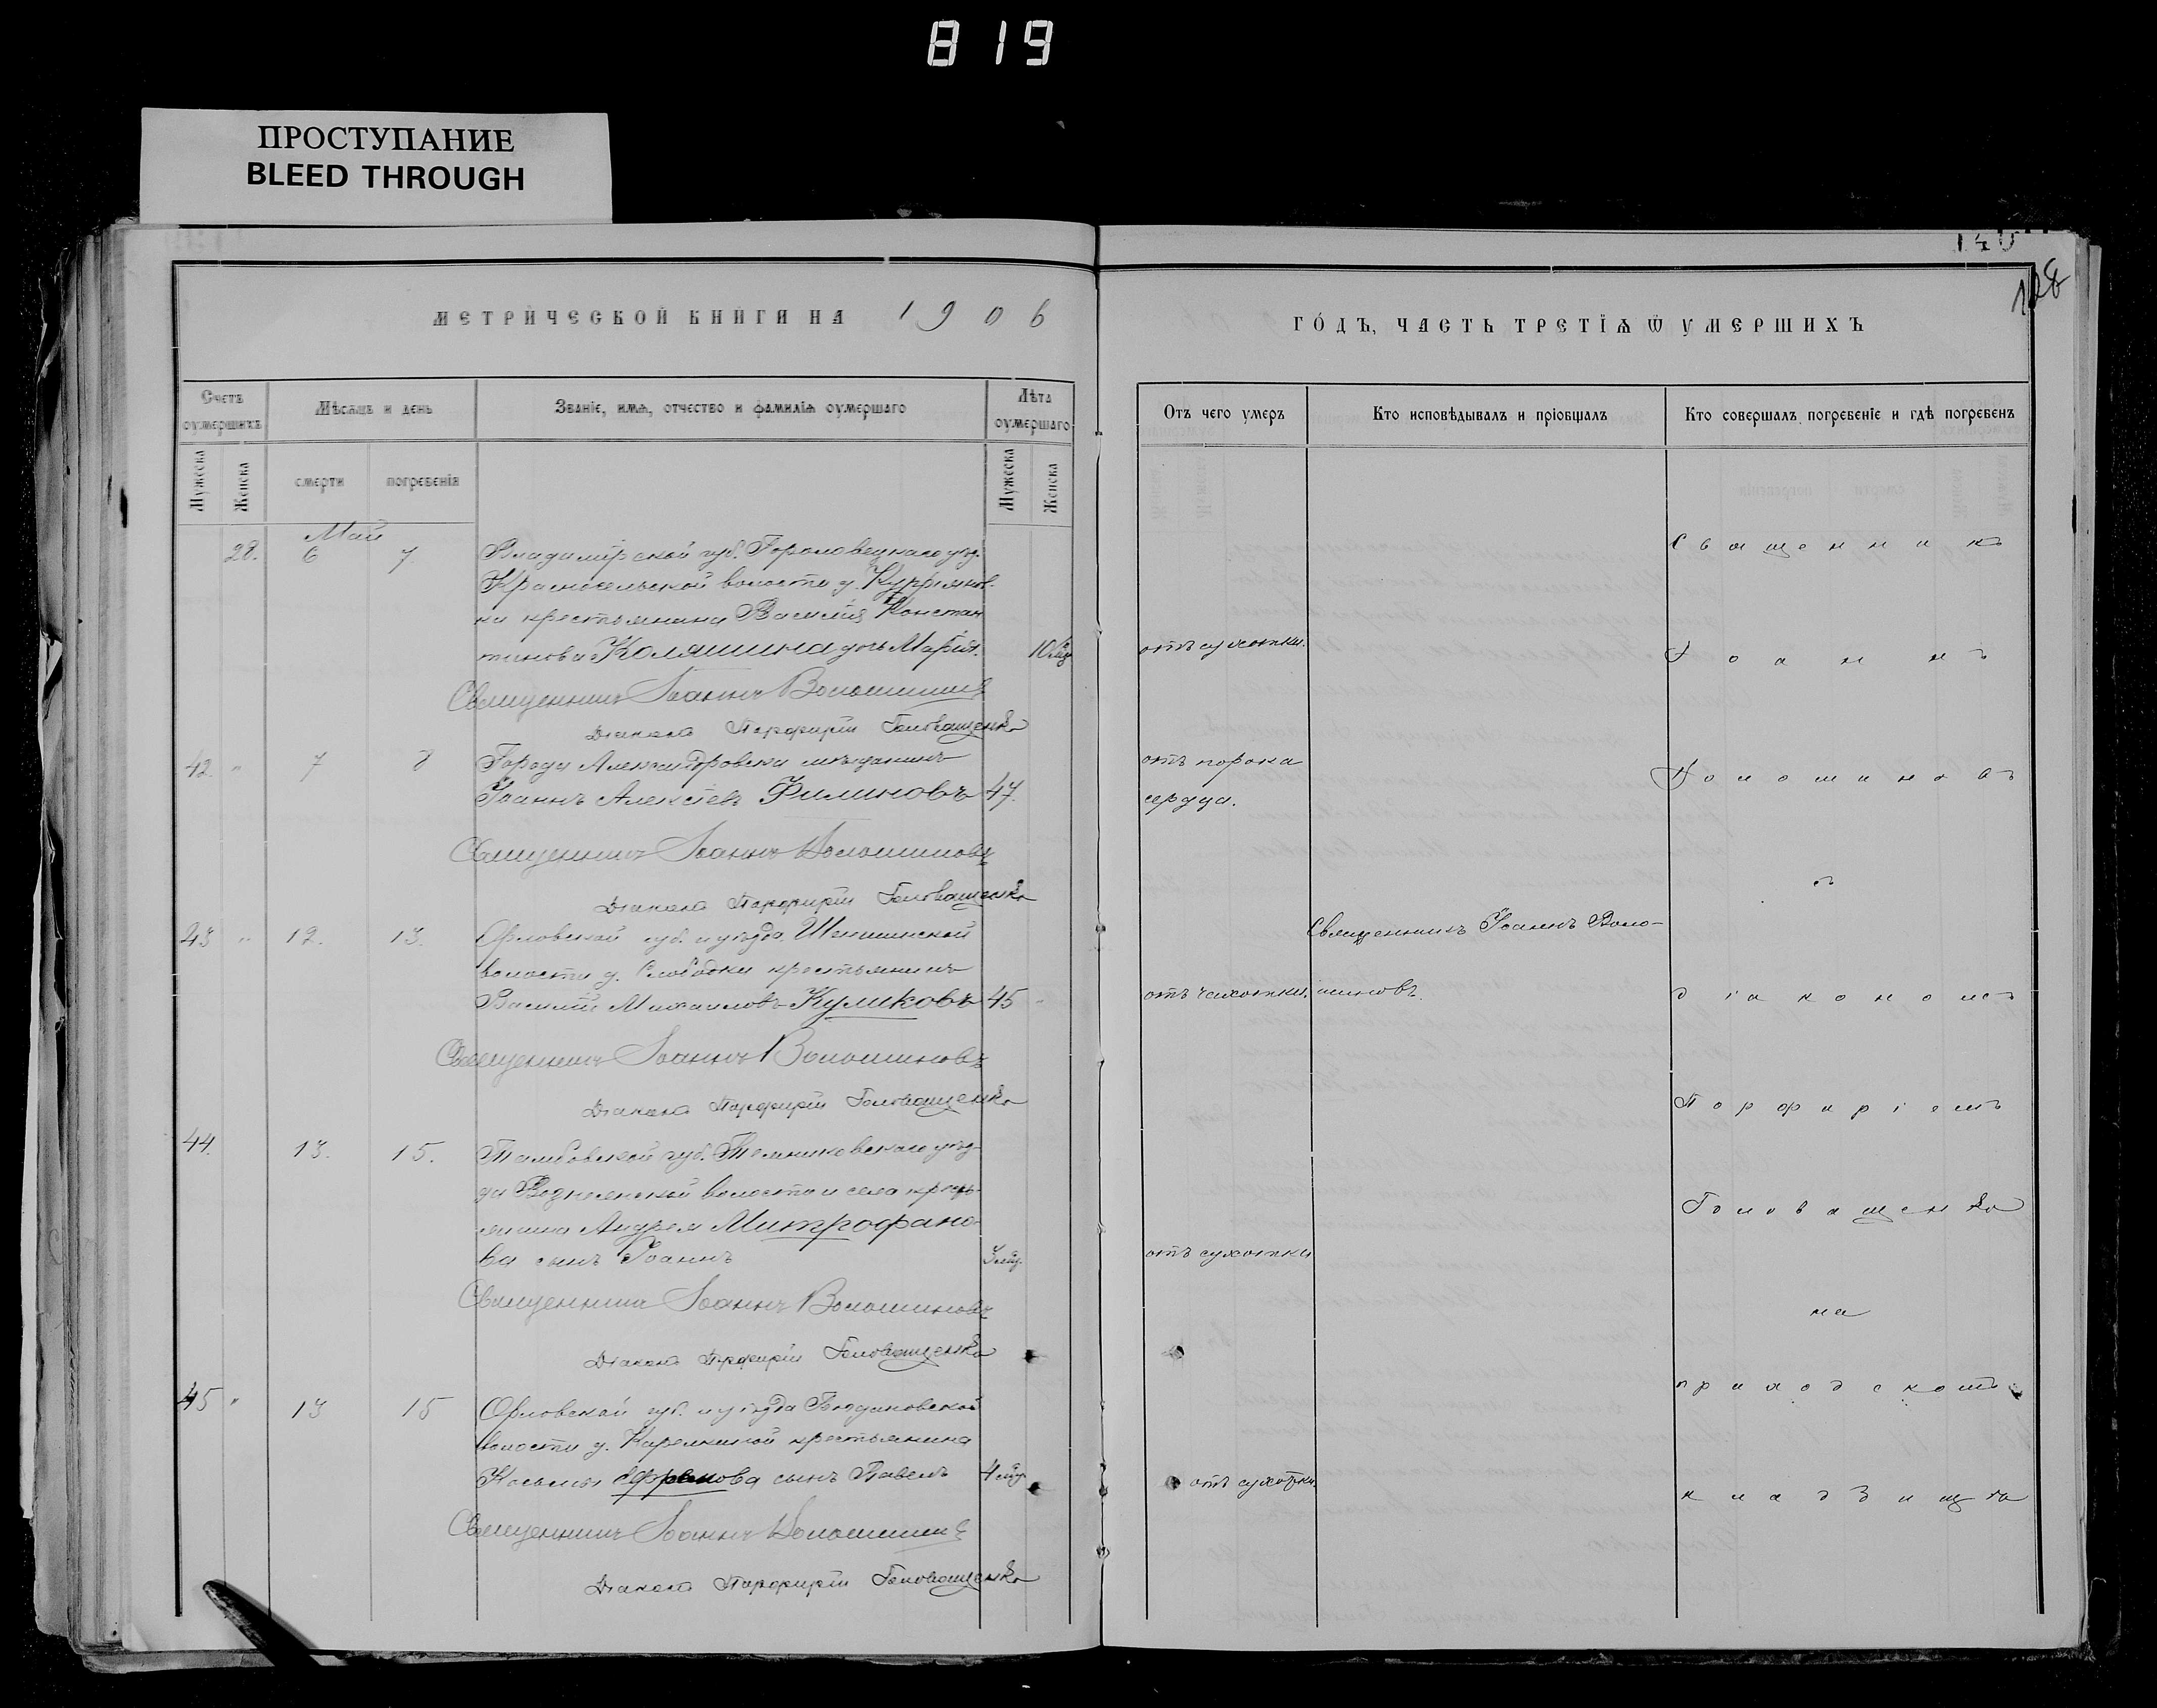 819
ПРОСТУПАНИЕ
BLEED THROUGH
МЕТРИЧЕСКОЙ КНИГИ НА 1906
Счетъ оумершихъ
Мѣсяцъ и день
Званіе, имя, отчество и фамилія оумершаго
Лѣта оумершаго
Мужеска
Женска
смерти
погребенія
Мужеска
Женска
Май
28. 6 7. Владимірской губ. Гороховецкаго уѣз.
Красносельской волости д.
ки крестьянина Василія Констан
тинова Коляшина дочь Марія. 10 мѣс.
Священникъ Іоаннъ Волошиновъ
Діаконъ Порфирій Головащенко
42. " 7 8 Города Александровска мѣщанинъ
Іоаннъ Алексѣевъ Филиновъ 47.
Священникъ Іоаннъ Волошиновъ
Діаконъ Порфирій Головащенко
43 " 12. 13. Орловской губ. и уѣзда, Шеншинской
волости д. Слободки крестьянинъ
Василій Михаиловъ Куликовъ 45 "
Священникъ Іоаннъ Волошиновъ
Діаконъ Порфирій Головащенко
44. 13. 15. Тамбовской губ. Темниковскаго уѣз-
да Вознесенской волости и села крест-
янина Андрея Митрофано-
ва сынъ Іоаннъ мѣс.
Священникъ Іоаннъ Волошиновъ
Діаконъ Порфирій Головащенко
45 " 13 15 Орловской губ. и уѣзда Богдановской
волости д. Карелкиной крестьянина
Косьмы сынъ Павелъ 4 мѣс.
Священникъ Іоаннъ Волошиновъ
Діаконъ Порфирій Головащенко
140
128
ГОДЪ, ЧАСТЬ ТРЕТІѦ Ѿ УМЕРШИХЪ
Отъ чего умеръ
Кто исповѣдывалъ и пріобщалъ
Кто совершалъ погребеніе и гдѣ погребенъ
Священникъ
отъ сухотки.
Іоаннъ
отъ порока
Волошиновъ
сердца.
съ
Священникъ Іоаннъ Воло-
отъ чахотки. шиновъ.
діакономъ
Порфиріемъ
Головащенко
отъ сухотки
на
приходскомъ
отъ сухотки.
кладбищѣ